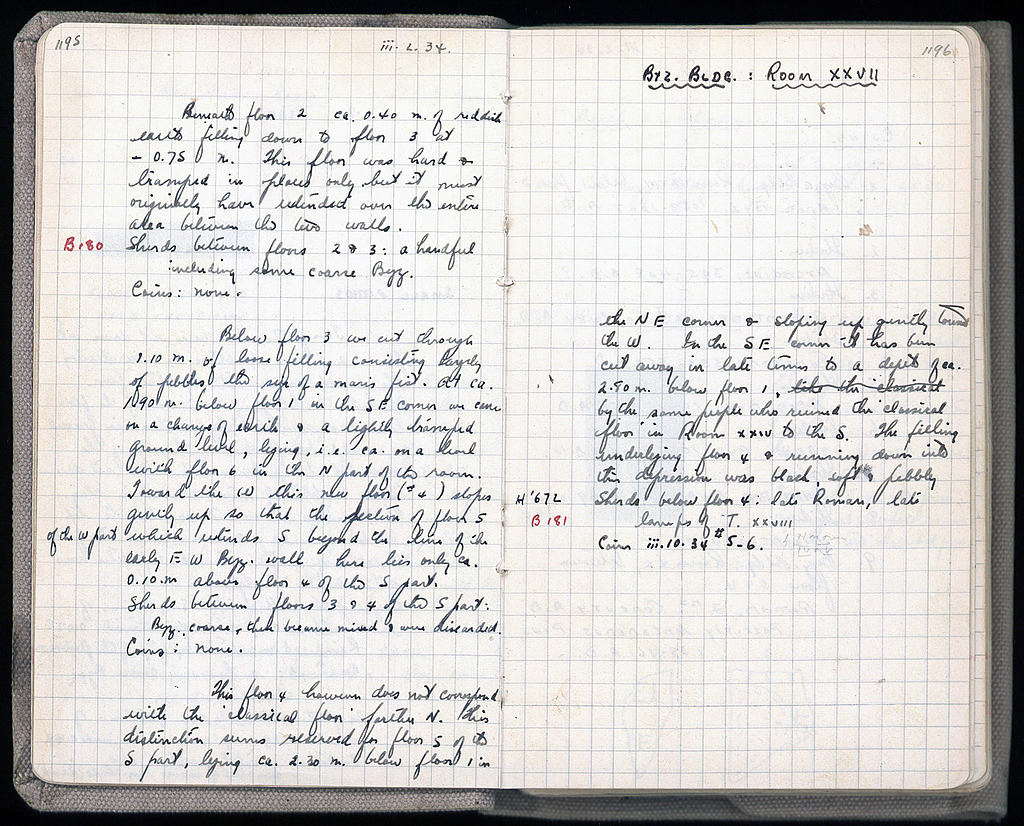 1195
iii. 2. 34.
Beneath floor 2 ca. 0.40 m. of reddish
earth filling down to floor 3 at
- 0.75 m. This floor was hard &
tramped in places only but it must
originally have extended over the entire
area between the two walls.
B 180 Sherds between floors 2 & 3: a handful
including some coarse Byz.
Coins: none.
Below floor 3 we cut through
1.10 m. of loose filling consisting largely
of pebbles the size of a man's fist. At ca.
1.90 m. below floor 1 in the SE corner we came
on a change of earth & a lightly tramped
ground level, lying, i.e. ca. on a level
with floor 6 in the N part of the room.
Toward the W this new floor (#4) slopes
gently up so that the section of floor 5
of the W part which extends S beyond the line of the
early E W Byz. wall here lies only ca.
0.10 m above floor 4 of the S part.
Sherds between floors 3 & 4 of the S part:
Byz., coarse, then became mixed & were discarded.
Coins: none.
This floor 4 however does not correspond
with the 'classical floor' further N. This
distinction seems reserved for floor 5 of the
S part, lying ca. 2.30 m. below floor 1 in
1196
Byz. Bldg. : Room XXVII
the NE corner & sloping up gently toward
the W. In the SE corner it has been
cut away in late times to a depth of ca.
2.90 m. below floor 1, like the classical
by the same people who ruined the 'classical
floor' in Room XXIV to the S. The filling
underlying floor 4 & running down into
this depression was black, soft & pebbly
H' 672 Sherds below floor 4: late Roman, late
B 181 lamps of T. XXVIII
Coins iii.10.34 # 5-6.